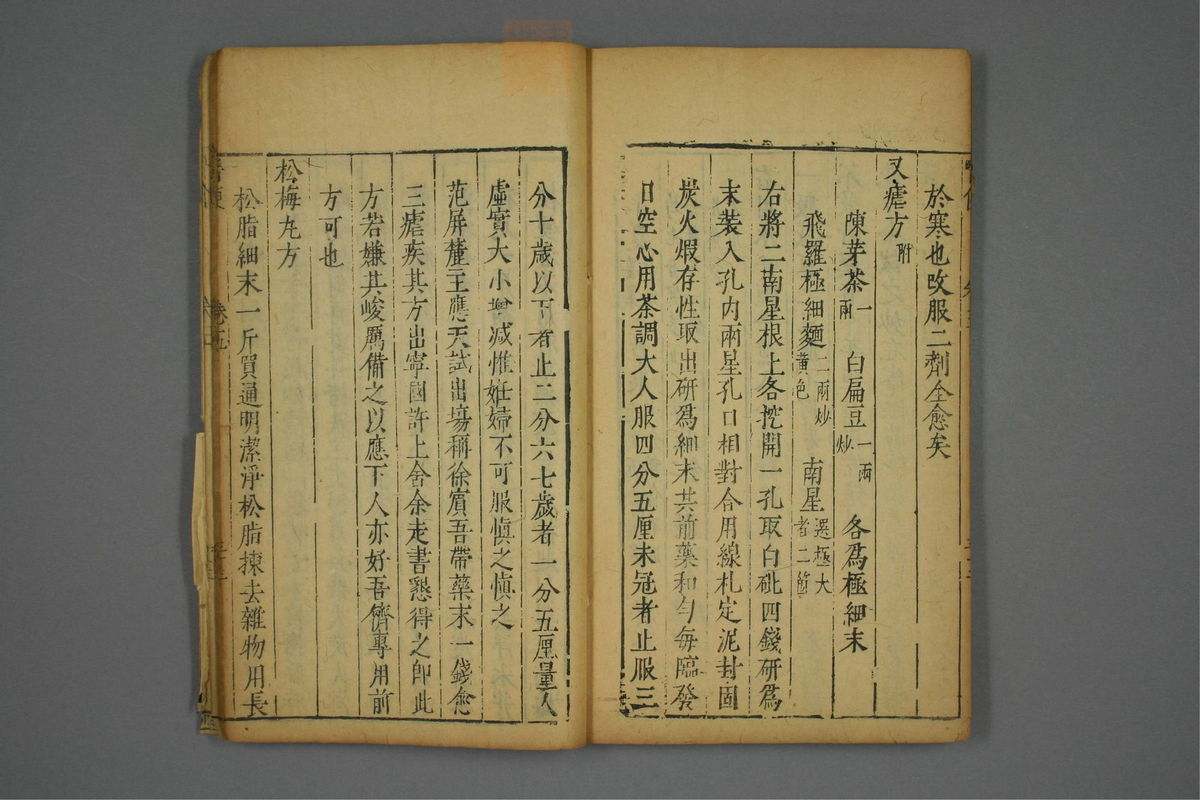 於寒也改服二劑全愈矣
又瘧方附
陳芽茶一兩 白扁豆一兩炒 各爲極細末
飛羅極細麵二兩炒黄色 南星選極大者二箇
右將二南星根上各挖開一孔取白砒四錢研爲
末装入孔内兩星孔口相對合用線札定泥封固
炭火煆存性取出研爲細末共前藥和勻每臨發
日空心用茶調大人服四分五厘未冠者止服三
分十歲以下者止二分六七歲者一分五厘量人
虛實大小增减惟妊婦不可服慎之慎之
范屏麓主應天試出場稱徐賓吾帶藥末一錢愈
三瘧疾其方出寧國許上舍余走書懇得之即此
方若嫌其峻厲備之以應下人亦好吾儕專用前
方可也
松梅丸方
松脂細末一斤買通明潔淨松脂揀去雜物用長
卷五